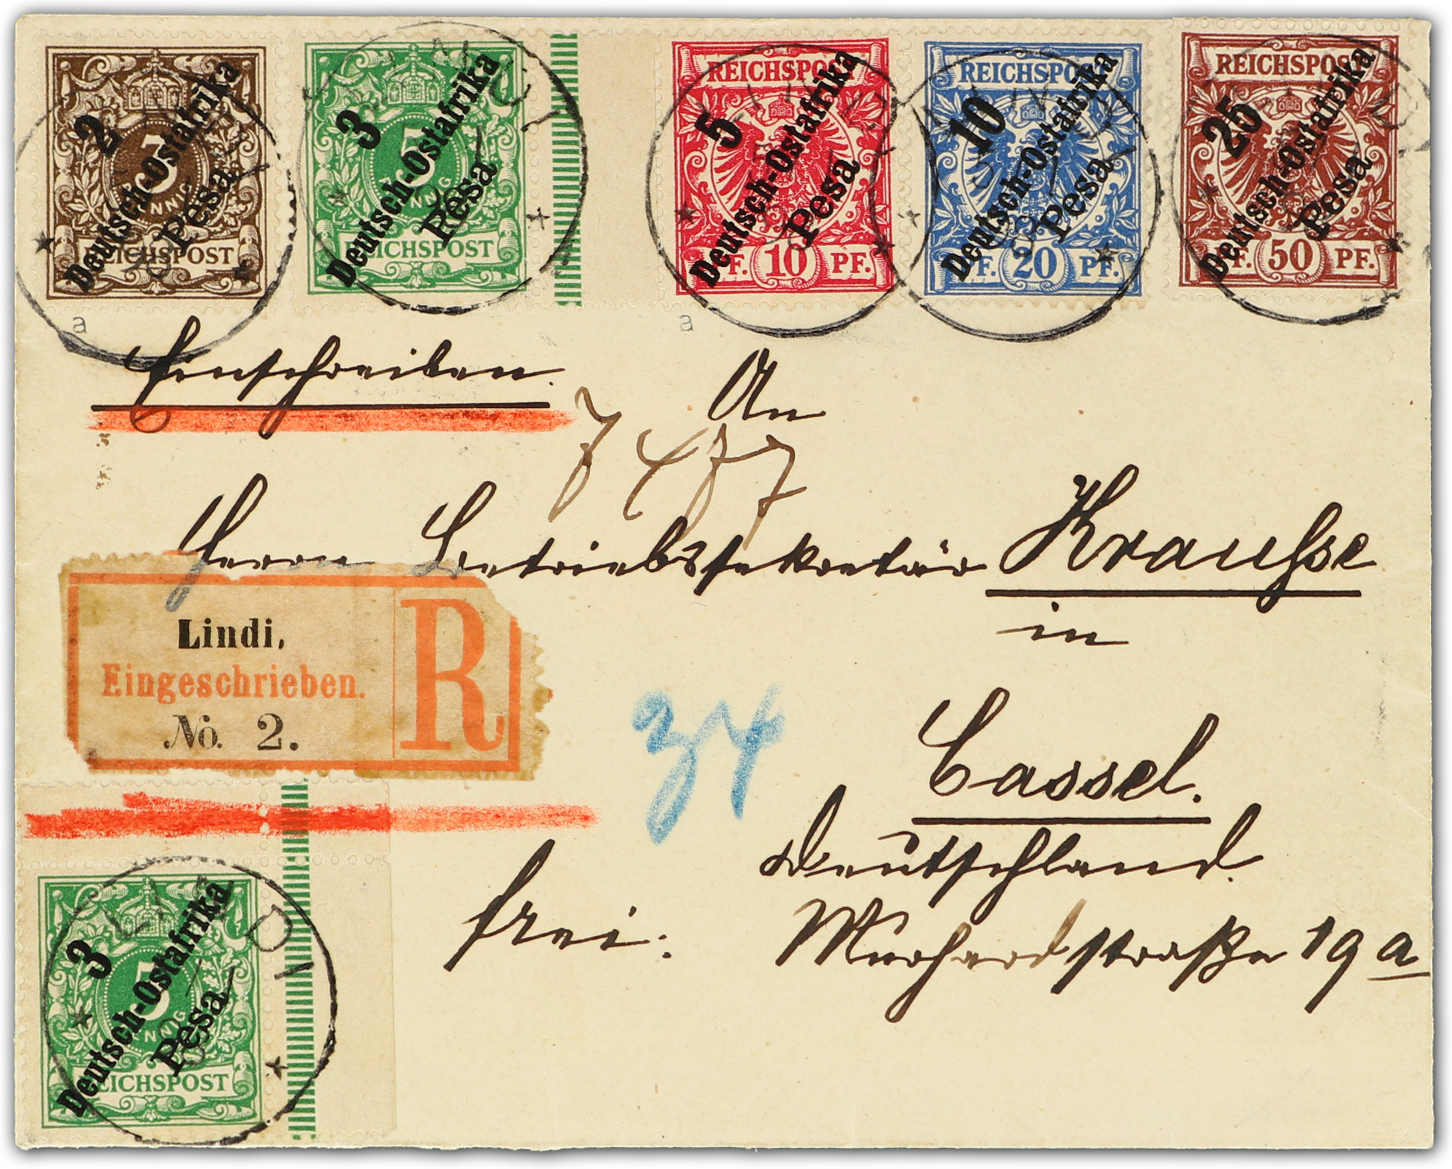 2 Deutsch-Ostafrika Pesa
3 PFENNIG REICHSPOST
3 Deutsch-Ostafrika Pesa
5 PFENNIG REICHSPOST
REICHSPOST
5 Deutsch-Ostafrika Pesa
PF. 10 PF.
REICHSPOST
10 Deutsch-Ostafrika Pesa
PF. 20 PF.
REICHSPOST
25 Deutsch-Ostafrika Pesa
PF. 50 PF.
LINDI
a
a
Einschreiben.
An
7477
Herrn Betriebssekretär Kraußse
in
Lindi.
Eingeschrieben.
No. 2.
R
34
Cassel.
Deutschland.
frei.
Murhardstraße 19 a
3 Deutsch-Ostafrika Pesa
5 PFENNIG REICHSPOST
LINDI